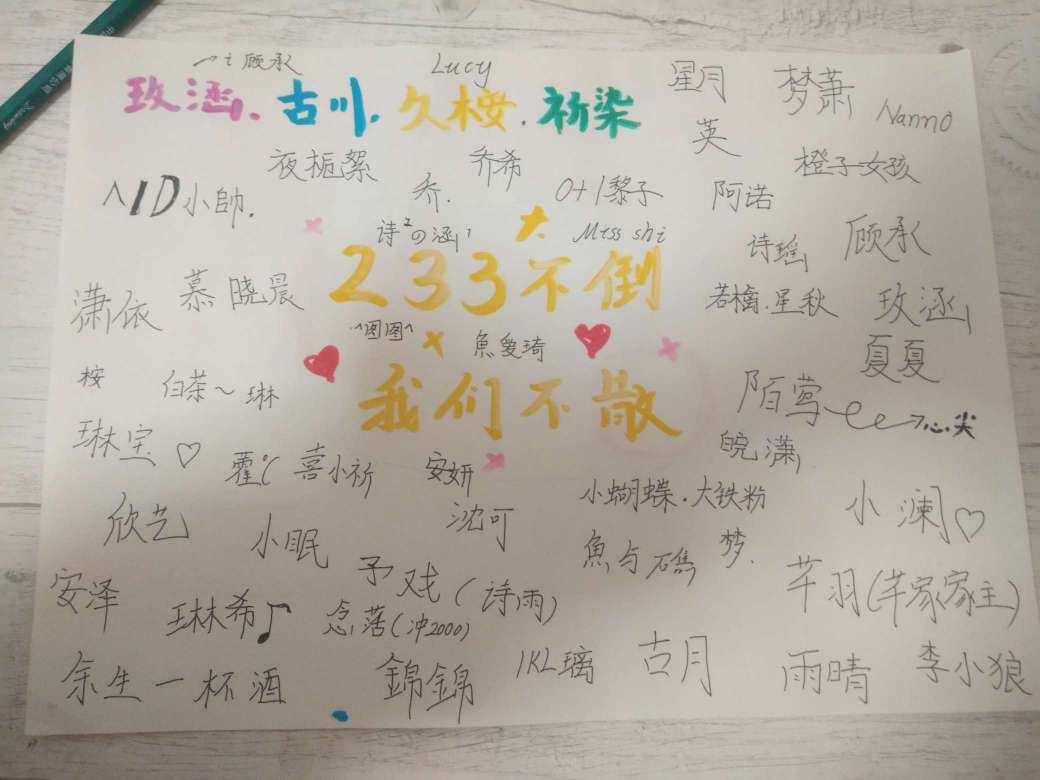 顾承
Lucy
玫涵.古川.久桉.祈染
星月
梦萧
Nanno
英
夜栀絮
乔希
橙子女孩
^ID小帥.
乔.
0+1黎子
阿诺
诗²の涵
大
Miss shi
诗瑶
顾承
233不倒
潇依
慕晓晨
若檎.星秋
玫涵
^图图^
魚爱琦
夏夏
桉
白茶～琳
我们不散
陌莺
心尖
琳宝♡
皖潇
霍℃
喜小祈
安妍
小蝴蝶.大铁粉
小澜♡
欣艺
小眠
沈可
魚与
梦.
安泽
予戏(诗雨)
芊羽(芊家家主)
琳希♫
念落(冲2000)
余生一杯酒
錦錦
1KL璃
古月
雨晴
李小狼